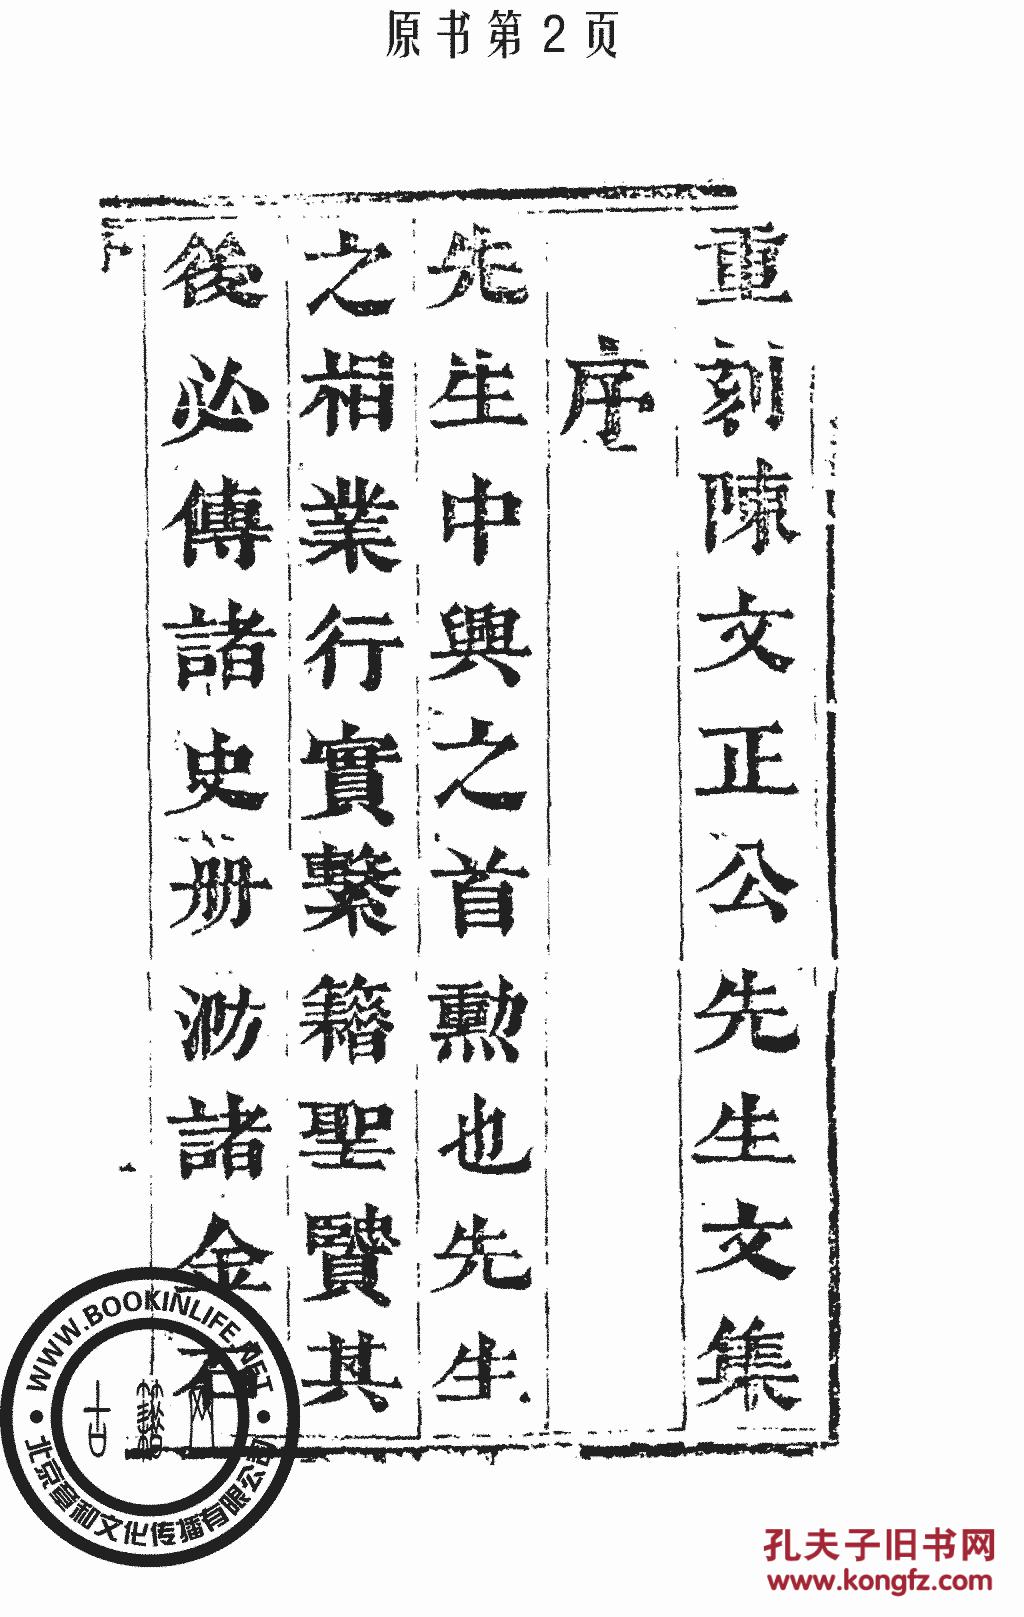 原书第2页
重刻陳文正公先生文集
序
先生中興之首勲也先生
之相業行實繫籍聖賢其
後必傳諸史册泐諸金石
WWW.BOOKINLIFE.NET
北京章和文化传播有限公司
孔夫子旧书网
www.kongfz.com